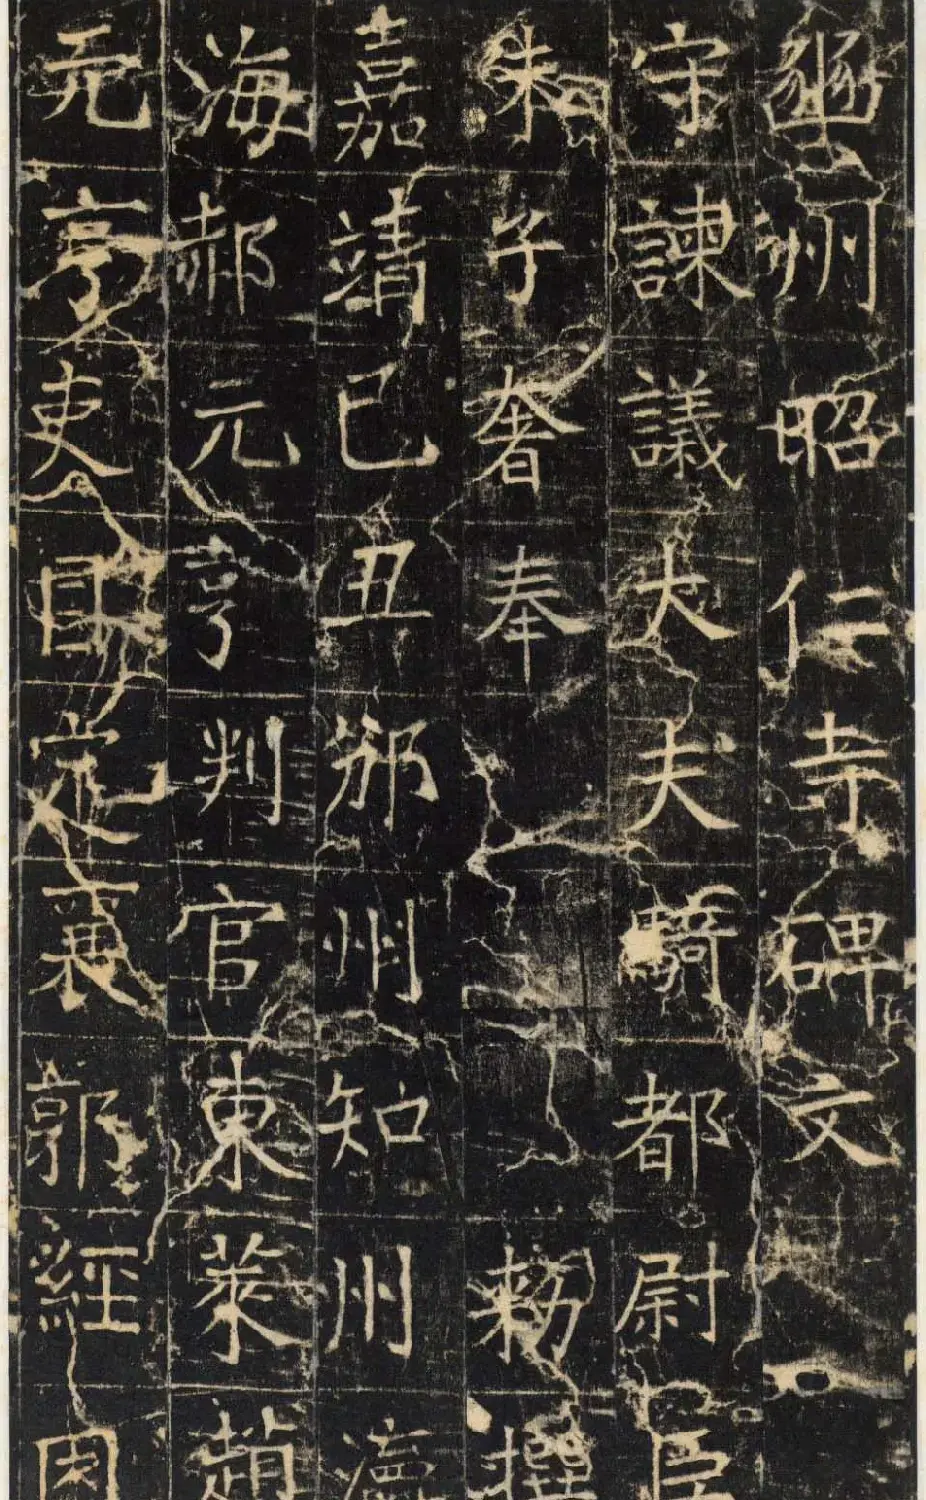 豳州昭仁寺碑文
守諫議大夫騎都尉臣
朱子奢奉勑撰
嘉靖己丑邠州知州瀛
海郝元亨判官東萊趙
无亨吏目定襄郭經因